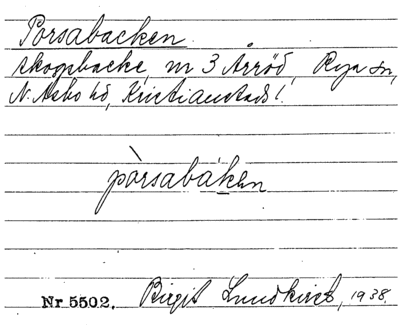 Porsabacken
skogsbacke, nr 3 Årröd, Rya sn,
N. Åsbo hd, Kristianstads l.
pòrsabáken
Nr 5502. Birgit Lundkvist, 1938.